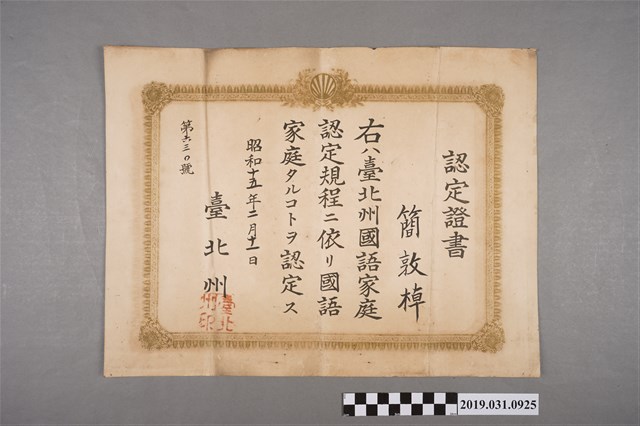 認定證書
簡敦棹
右ハ臺北州國語家庭
認定規程ニ依リ國語
家庭タルコトヲ認定ス
昭和十五年二月十一日
臺北州
臺北
州印
第六三〇號
2019.031.0925